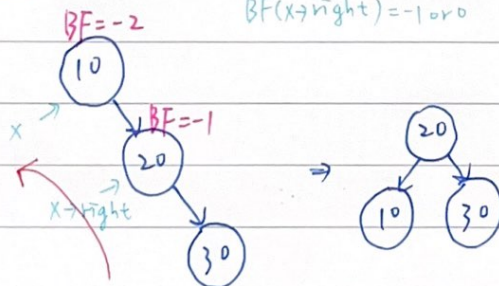 BF(x→right) = -1 or 0
BF=-2
10
x
BF=-1
20
x→right
30
⇒
20
10
30